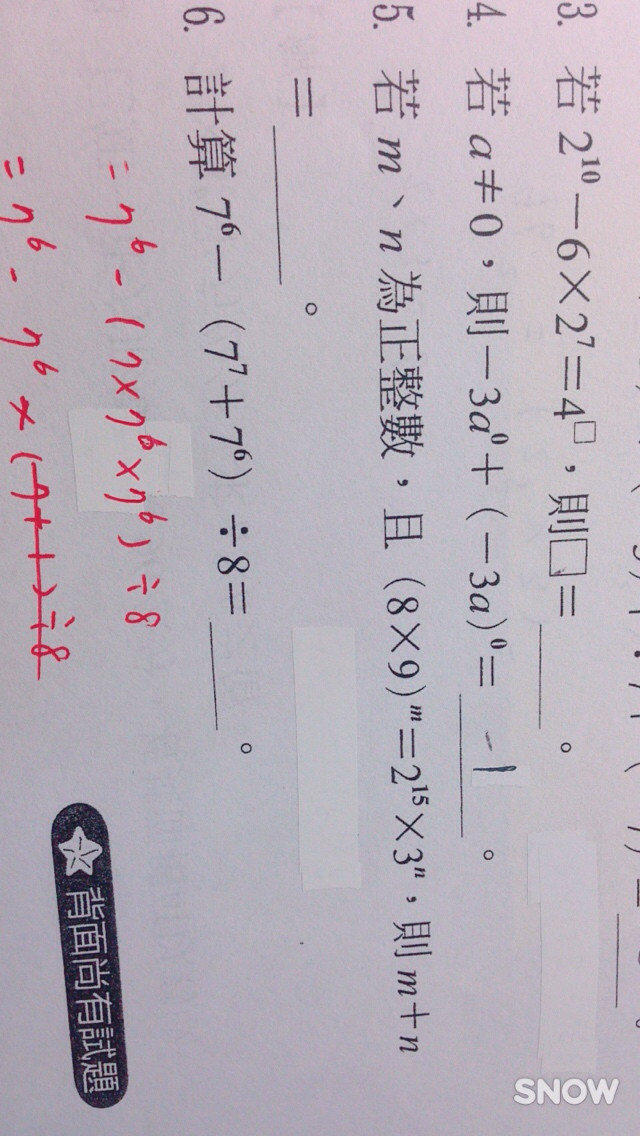 3. 若 2¹⁰－6×2⁷＝4□，則□＝＿＿＿。
4. 若 a≠0，則－3a⁰＋（－3a）⁰＝ -1 。
5. 若 m、n 為正整數，且（8×9）ᵐ＝2¹⁵×3ⁿ，則 m＋n
＝＿＿＿。
6. 計算 7⁶－（7⁷＋7⁶）÷8＝＿＿＿。
= 7⁶ - (7×7⁶×7⁶)÷8
= 7⁶ - 7⁶×(7+1)÷8
背面尚有試題
SNOW